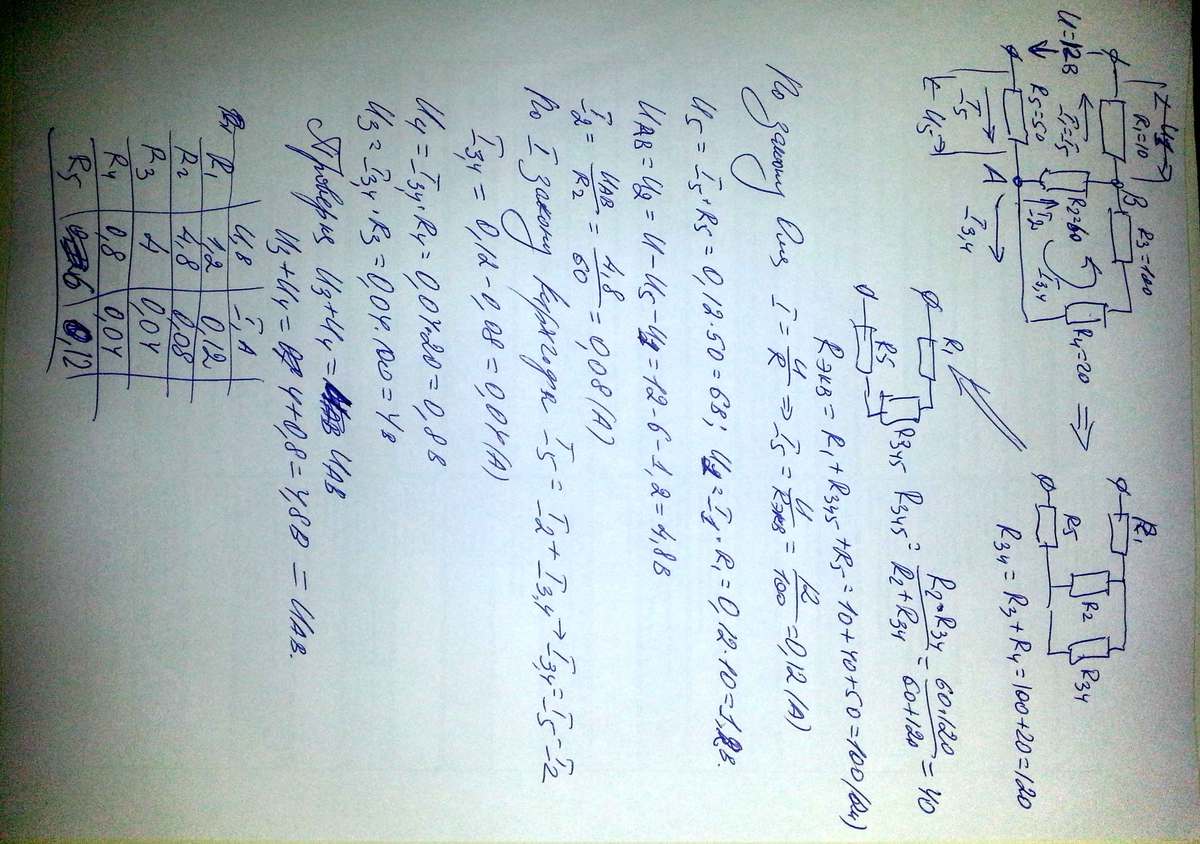 U=12В
U1
R1=10
I1=I5
R5=50
I5
U5
B
R2=60
I2
A
R3=100
I3,4
R4=20
I3,4
⇒
R1
R2
R34
R5
R34 = R3 + R4 = 100 + 20 = 120
R1
R345
R5
R345 = R2·R34 / R2+R34 = 60·120 / 60+120 = 40
Rэкв = R1 + R345 + R5 = 10 + 40 + 50 = 100 (Ом)
По закону Ома I = U/R ⇒ I5 = U/Rэкв = 12/100 = 0,12 (А)
U5 = I5 · R5 = 0,12·50 = 6В; U1 = I1 · R1 = 0,12·10 = 1,2В.
UAB = U2 = U - U5 - U1 = 12 - 6 - 1,2 = 4,8В
I2 = UAB/R2 = 4,8/60 = 0,08 (А)
По I закону Кирхгофа I5 = I2 + I3,4 → I3,4 = I5 - I2
I3,4 = 0,12 - 0,08 = 0,04 (А)
U4 = I3,4 · R4 = 0,04·20 = 0,8В
U3 = I3,4 · R3 = 0,04·100 = 4В
Проверка U3 + U4 = UAB
U3 + U4 = 4 + 0,8 = 4,8В = UAB.
U,В I,А
R1 1,2 0,12
R2 4,8 0,08
R3 4 0,04
R4 0,8 0,04
R5 6 0,12